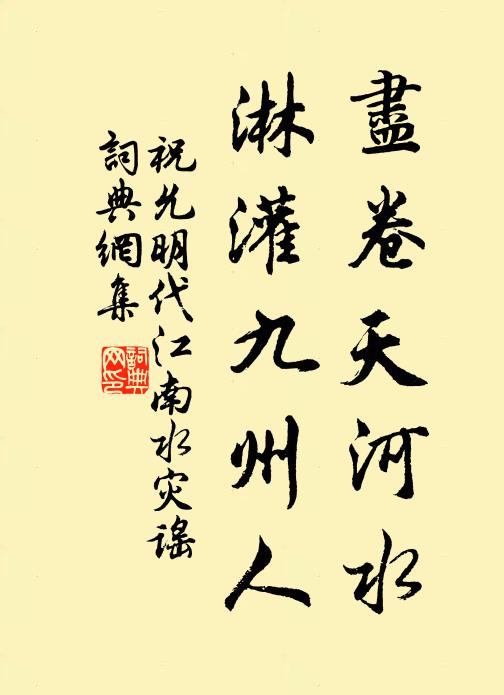 盡卷天河水
淋灌九州人
祝允明代江南水灾謠
詞典網集
詞典网印